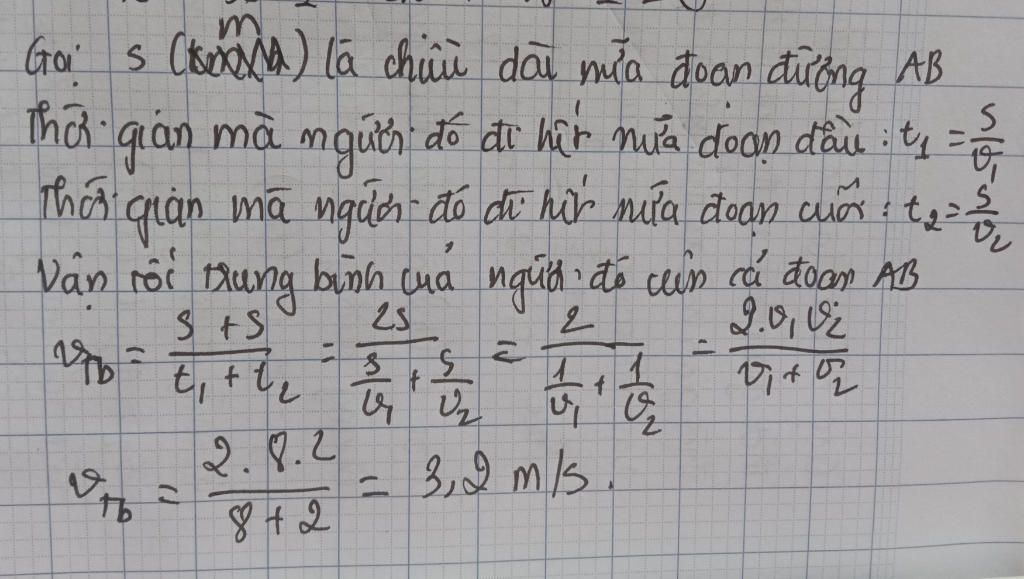 Gọi s (m) là chiều dài nửa đoạn đường AB
Thời gian mà người đó đi hết nửa đoạn đầu : t₁ = s/v₁
Thời gian mà người đó đi hết nửa đoạn cuối : t₂ = s/v₂
Vận tốc trung bình của người đó trên cả đoạn AB
v_Tb = (s + s)/(t₁ + t₂) = 2s/(s/v₁ + s/v₂) = 2/(1/v₁ + 1/v₂) = 2.v₁v₂/(v₁ + v₂)
v_Tb = (2.8.2)/(8 + 2) = 3,2 m/s.